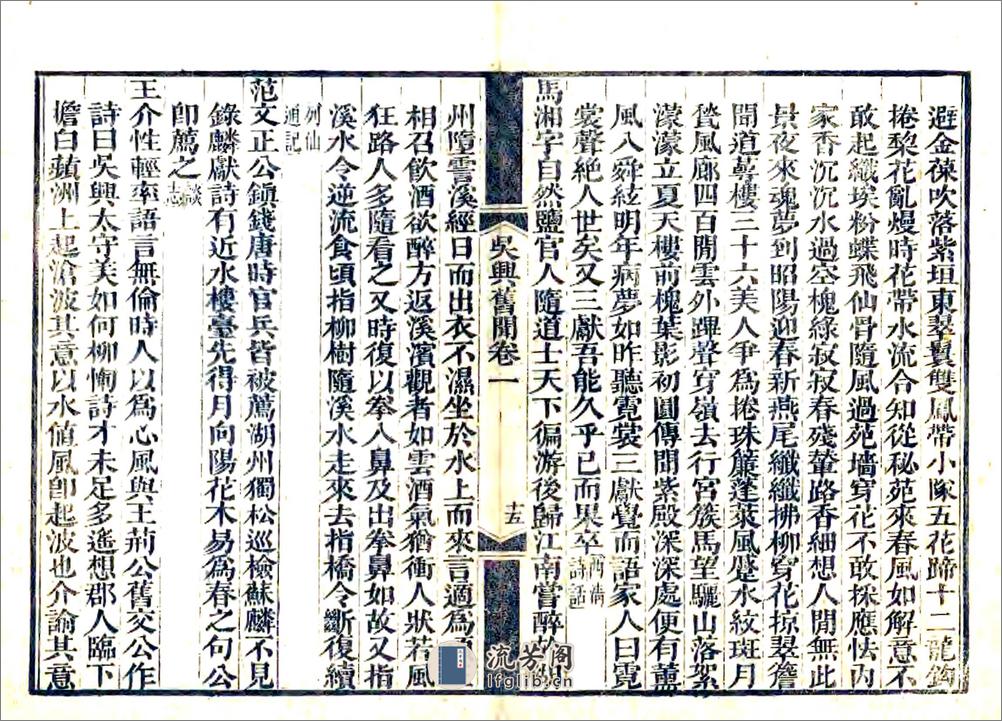 避金葆吹落紫垣東翠鬟雙鳳帶小隊五花蹄十二龍鈎
捲黎花亂熳時花帶水流合知從秘苑來春風如解意不
敢起纖埃粉蝶飛仙骨隨風過苑墻穿花不敢採應怯內
家香沉沉水過空槐綠寂寂春殘輦路香細想人間無此
景夜來魂夢到昭陽迎春新燕尾纖纖拂柳穿花掠翠簷
聞道蕚樓三十六美人爭為捲珠簾蓬萊風蹙水紋斑月
甃風廊四百間雲外蹕聲穿嶺去行宮簇馬望驪山落絮
濛濛立夏天樓前槐葉影初圓傳聞紫殿深深處便有薰
風入舜絃明年病夢如昨聽霓裳三獻覺而語家人曰霓
裳聲絕人世矣又三獻吾能久乎已而果卒西清詩話
馬湘字自然鹽官人隨道士天下徧游後歸江南嘗醉
吳興舊聞卷一
十五
州墮霅溪經日而出衣不濕坐於水上而來言適為
相召飲酒欲醉方返溪濱觀者如雲酒氣猶衝人狀若風
狂路人多隨看之又時復以拳入鼻及出拳鼻如故又指
溪水令逆流食頃指柳樹隨溪水走來去指橋令斷復續
列仙通記
范文正公鎮錢唐時官兵皆被薦湖州獨松巡檢蘇麟不見
錄麟獻詩有近水樓臺先得月向陽花木易為春之句公
即薦之談志
王介性輕率語言無倫時人以為心風與王荊公舊交公作
詩曰吳興太守美如何柳惲詩才未足多遙想郡人臨下
擔白蘋洲上起滄波其意以水值風即起波也介諭其意
流芳閣
lfglib.cn